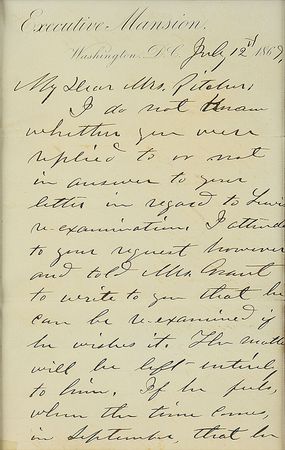 Executive Mansion.
Washington. D.C. July 12th 1869,
My Dear Mrs. Pitcher;
I do not know
whether you were
replied to or not
in answer to your
letter in regard to
re-examination. I attended
to your request however
and told Mrs. Grant
to write to you that he
can be re-examined if
he wishes it. The matter
will be left entirely
to him. If he feels,
when the time comes,
in September, that he